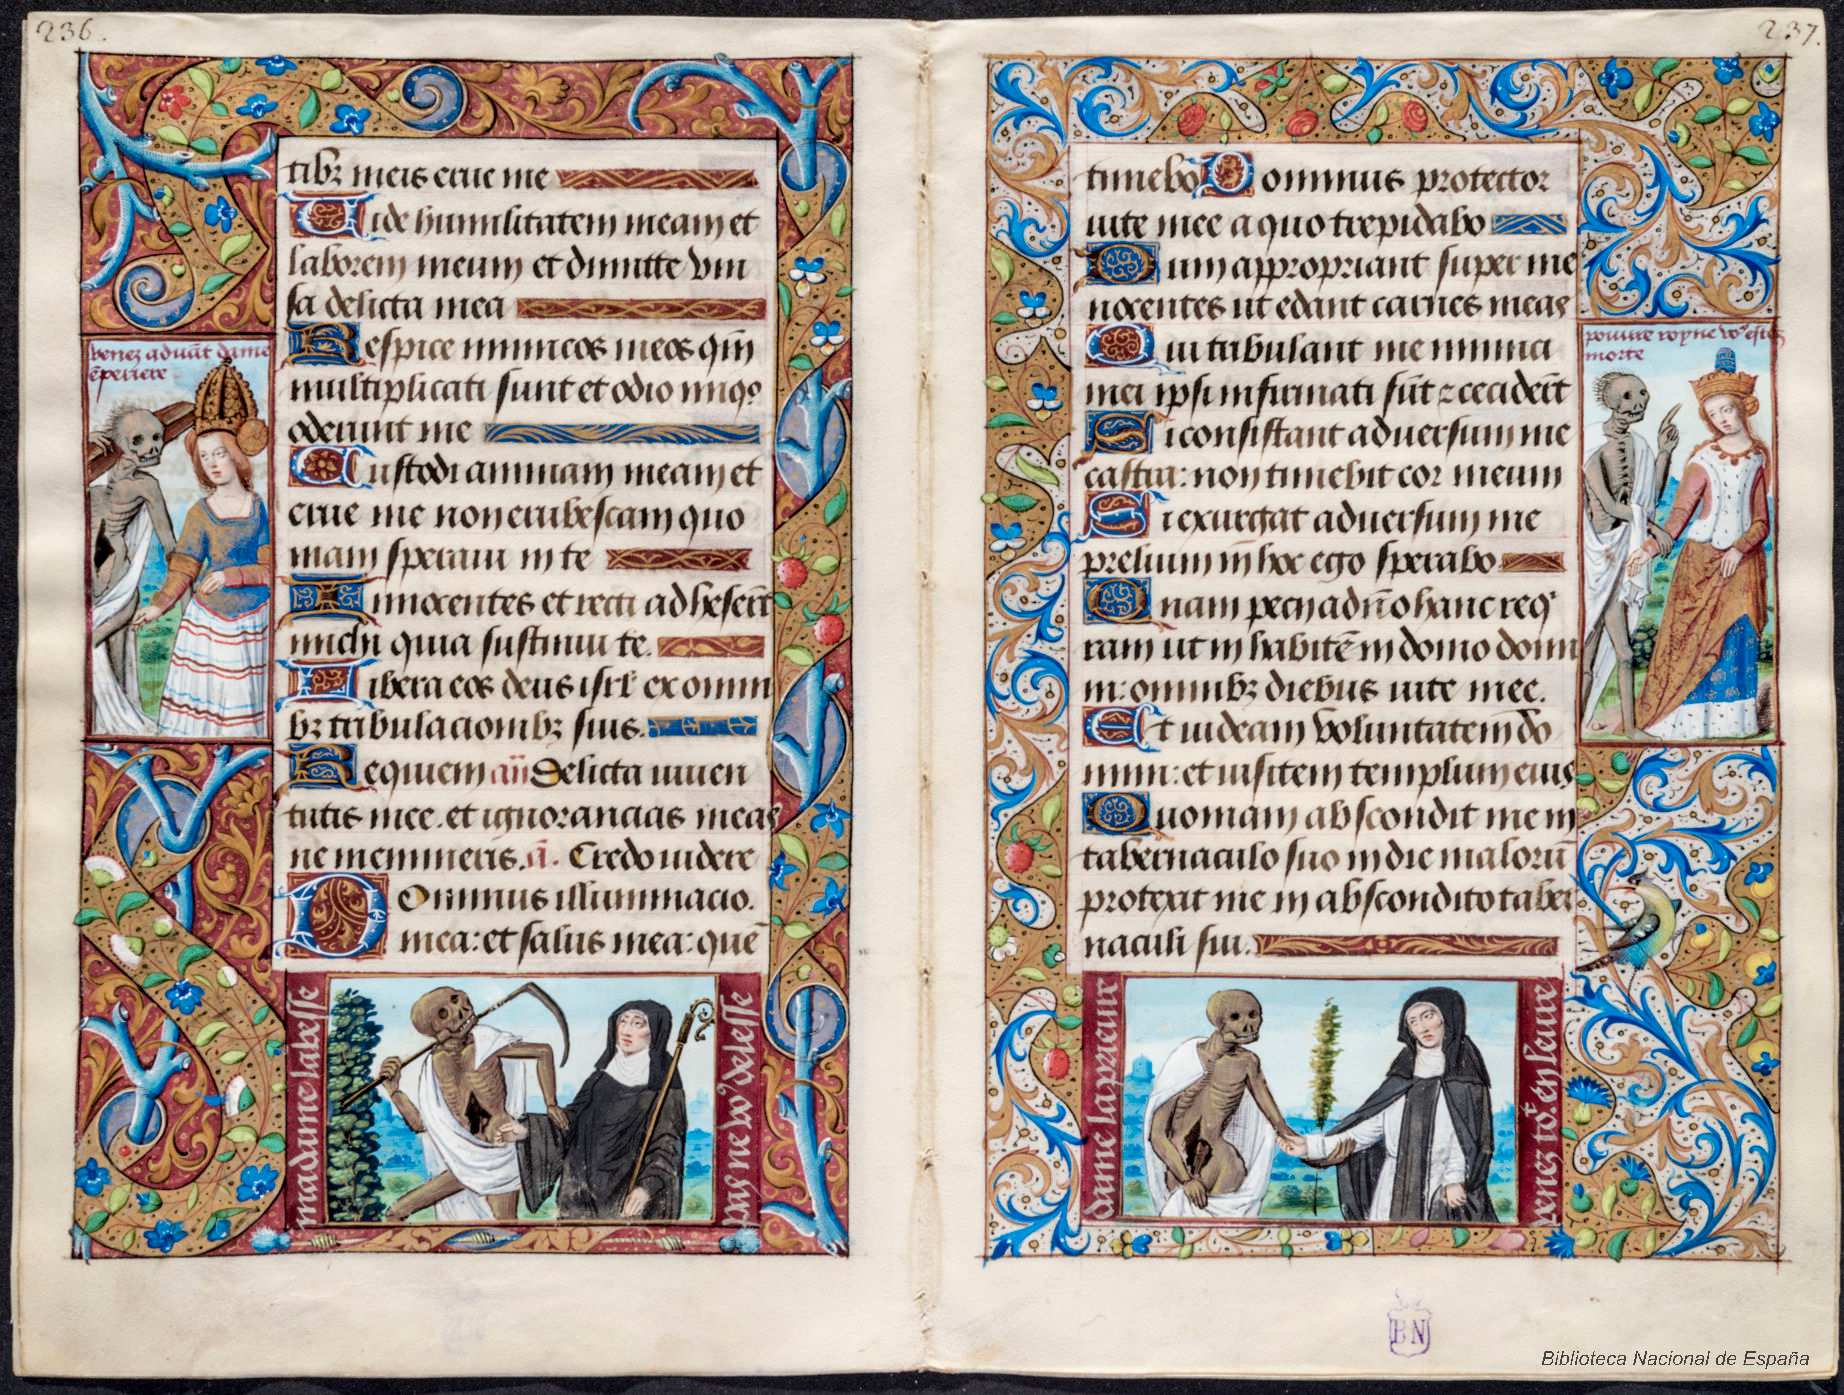 236.
tibꝫ meis erue me
Vide humilitatem meam et
laborem meum et dimitte vni
sa delicta mea
Respice inimicos meos qm̄
multiplicati sunt et odio iniqo
oderunt me
Custodi animam meam et
erue me non erubescam quo
niam speraui in te
Innocentes et recti adheserūt
michi quia sustinui te.
Libera eos deus isrl̄ ex omni
bꝫ tribulacionibꝫ suis.
Requiem añ Delicta iuuen
tutis mee. et ignorancias meas
ne memineris. a. Credo uidere
Dominus illuminacio.
mea: et salus mea: quē
venez aduāt dame
ēperiere
madame labesse
237.
timebo Dominus protector
uite mee a quo trepidabo
Dum appropriant super me
nocentes ut edant carnes meas
Qui tribulant me inimici
mei ipsi infirmati sūt ⁊ cecidērt
Si consistant aduersum me
castra: non timebit cor meum
Si exurgat aduersum me
prelium in hoc ego sperabo
Unam pecij a dño hanc req̄
ram ut inhabitē in domo domi
ni: omnibꝫ diebus uite mee.
Et uideam voluntatem do
mini: et uisitem templum eius
Quoniam abscondit me in
tabernaculo suo in die malorū
protexit me in abscondito taber
naculi sui.
pouure royne vo9 estes
morte
dame la prieure
BN
Biblioteca Nacional de España